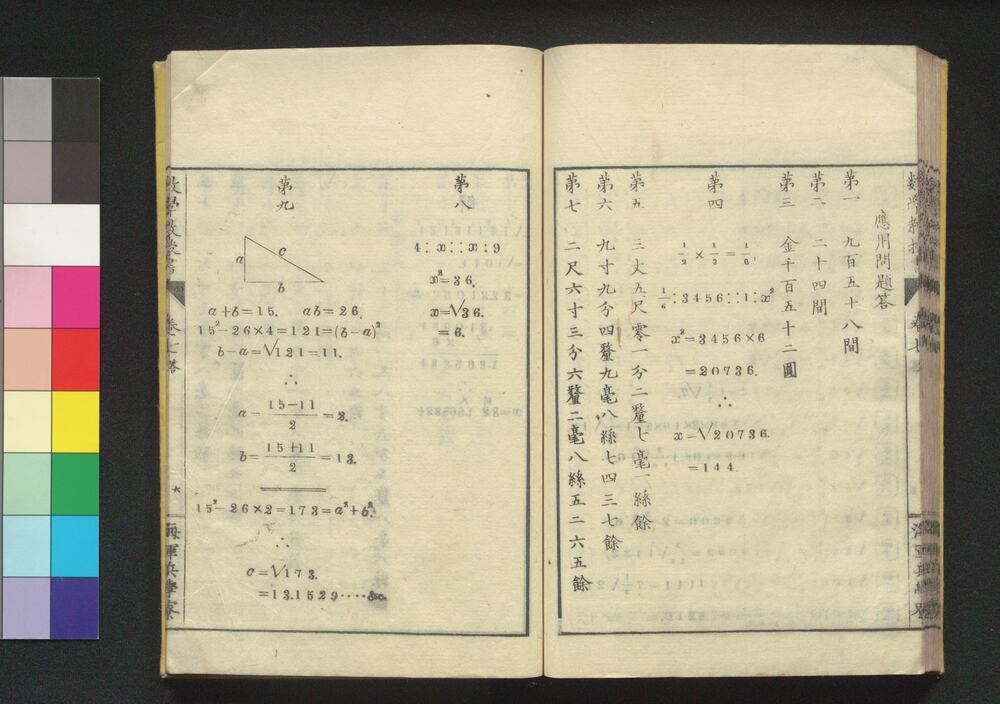 應用問題答
第一 九百五十八間
第二 二十四間
第三 金千百五十二圓
第四
1/2 × 1/2 = 1/6.
1/6 : 3456 :: 1 : x²
x² = 3456 × 6
= 20736.
∴
x = √20736.
= 144.
第五 三丈五尺零一分二釐七毫一絲餘
第六 九寸九分四釐九毫八絲七四三七餘
第七 二尺六寸三分六釐二毫八絲五二六五餘
第八
4 : x :: x : 9
x² = 36.
x = √36.
= 6.
第九
a c
b
a + b = 15. ab = 26.
15² − 26 × 4 = 121 = (b − a)²
b − a = √121 = 11.
∴
a = (15 − 11)/2 = 2.
b = (15 + 11)/2 = 13.
15² − 26 × 2 = 173 = a² + b².
∴
c = √173.
= 13.1529····&c.
數學教授書
卷七答
六
海軍兵學寮